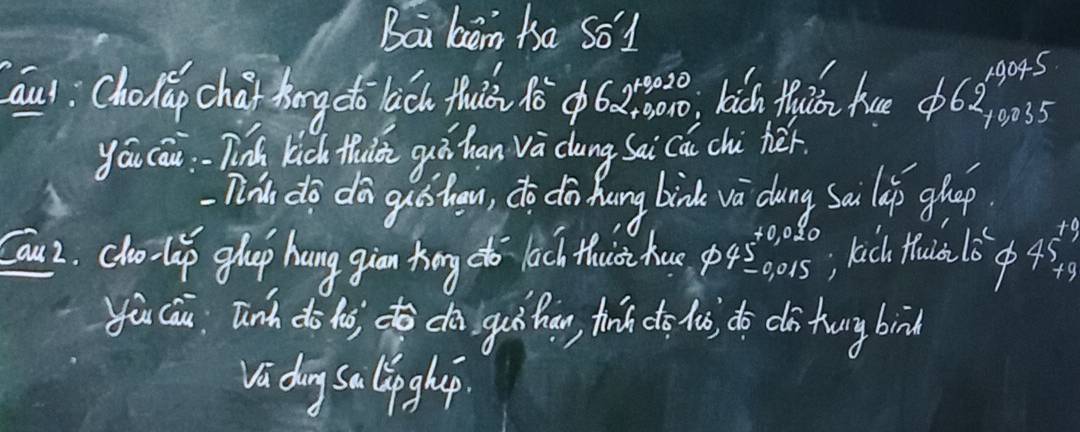 Bài kiểm tra số 1
Câu 1: Cho lắp chặt trong đó kích thước lỗ ϕ62 +0,020 +0,010; kích thước trục ϕ62 +0,045 +0,035
yêu cầu: - Tính kích thước giới hạn và dung sai các chi tiết.
- Tính độ dôi giới hạn, độ dôi trung bình và dung sai lắp ghép.
Câu 2. Cho lắp ghép trung gian trong đó kích thước trục ϕ45 +0,020 -0,015; kích thước lỗ ϕ45
yêu cầu: Tính độ hở, độ dôi giới hạn, tính độ hở, độ dôi trung bình
và dung sai lắp ghép.